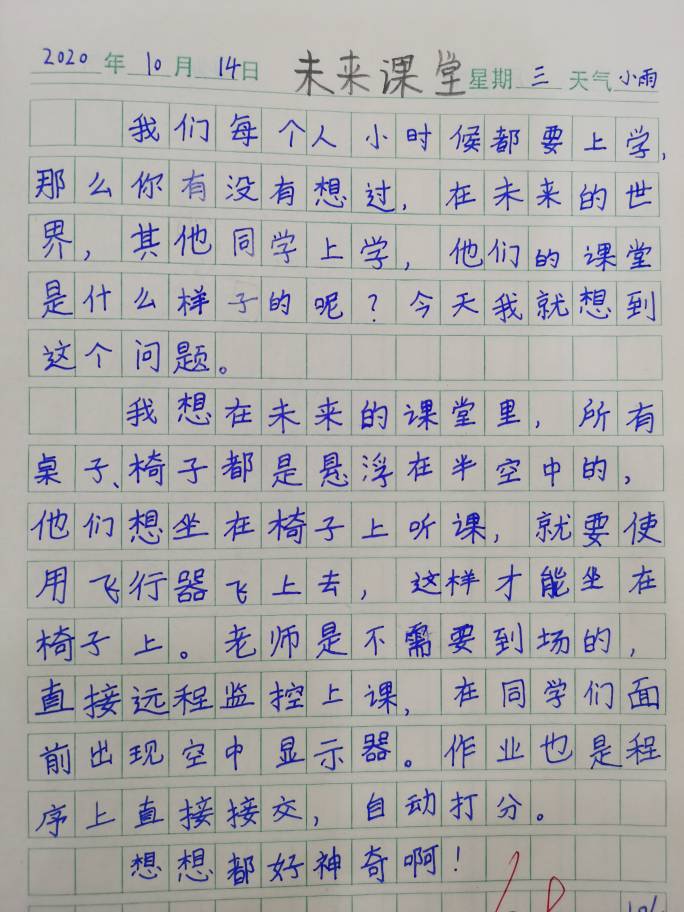 2020年10月14日 未来课堂 星期三 天气小雨
我们每个人小时候都要上学，
那么你有没有想过，在未来的世
界，其他同学上学，他们的课堂
是什么样子的呢？今天我就想到
这个问题。
我想在未来的课堂里，所有
桌子、椅子都是悬浮在半空中的，
他们想坐在椅子上听课，就要使
用飞行器飞上去，这样才能坐在
椅子上。老师是不需要到场的，
直接远程监控上课，在同学们面
前出现空中显示器。作业也是程
序上直接接交，自动打分。
想想都好神奇啊！